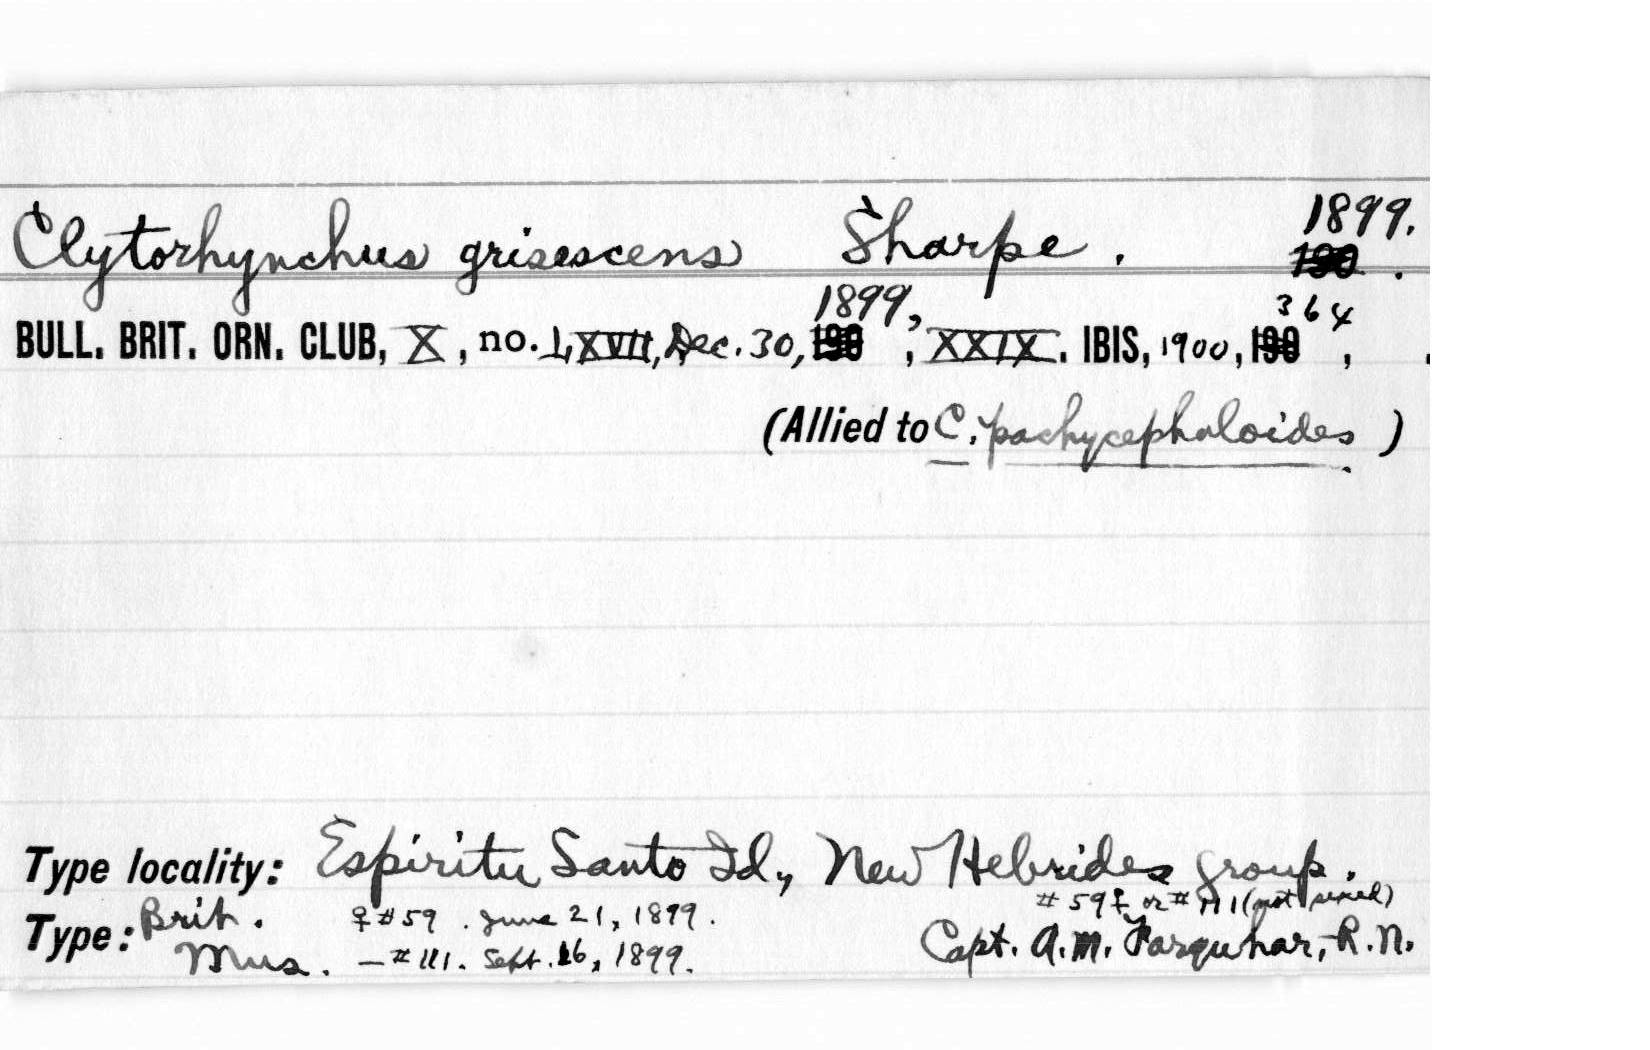 Clytorhynchus grisescens Sharpe. 1899.
BULL. BRIT. ORN. CLUB, X, no. LXVII, Dec. 30, 1899, XXIX. IBIS, 1900, 364,
(Allied to C. pachycephaloides)
Type locality: Espiritu Santo Id., New Hebrides group.
# 59 ♀ or # 111 (not sexed)
Type: Brit. ♀ # 59. June 21, 1899.
Mus. — # 111. Sept. 16, 1899. Capt. A. M. Farquhar, R. N.